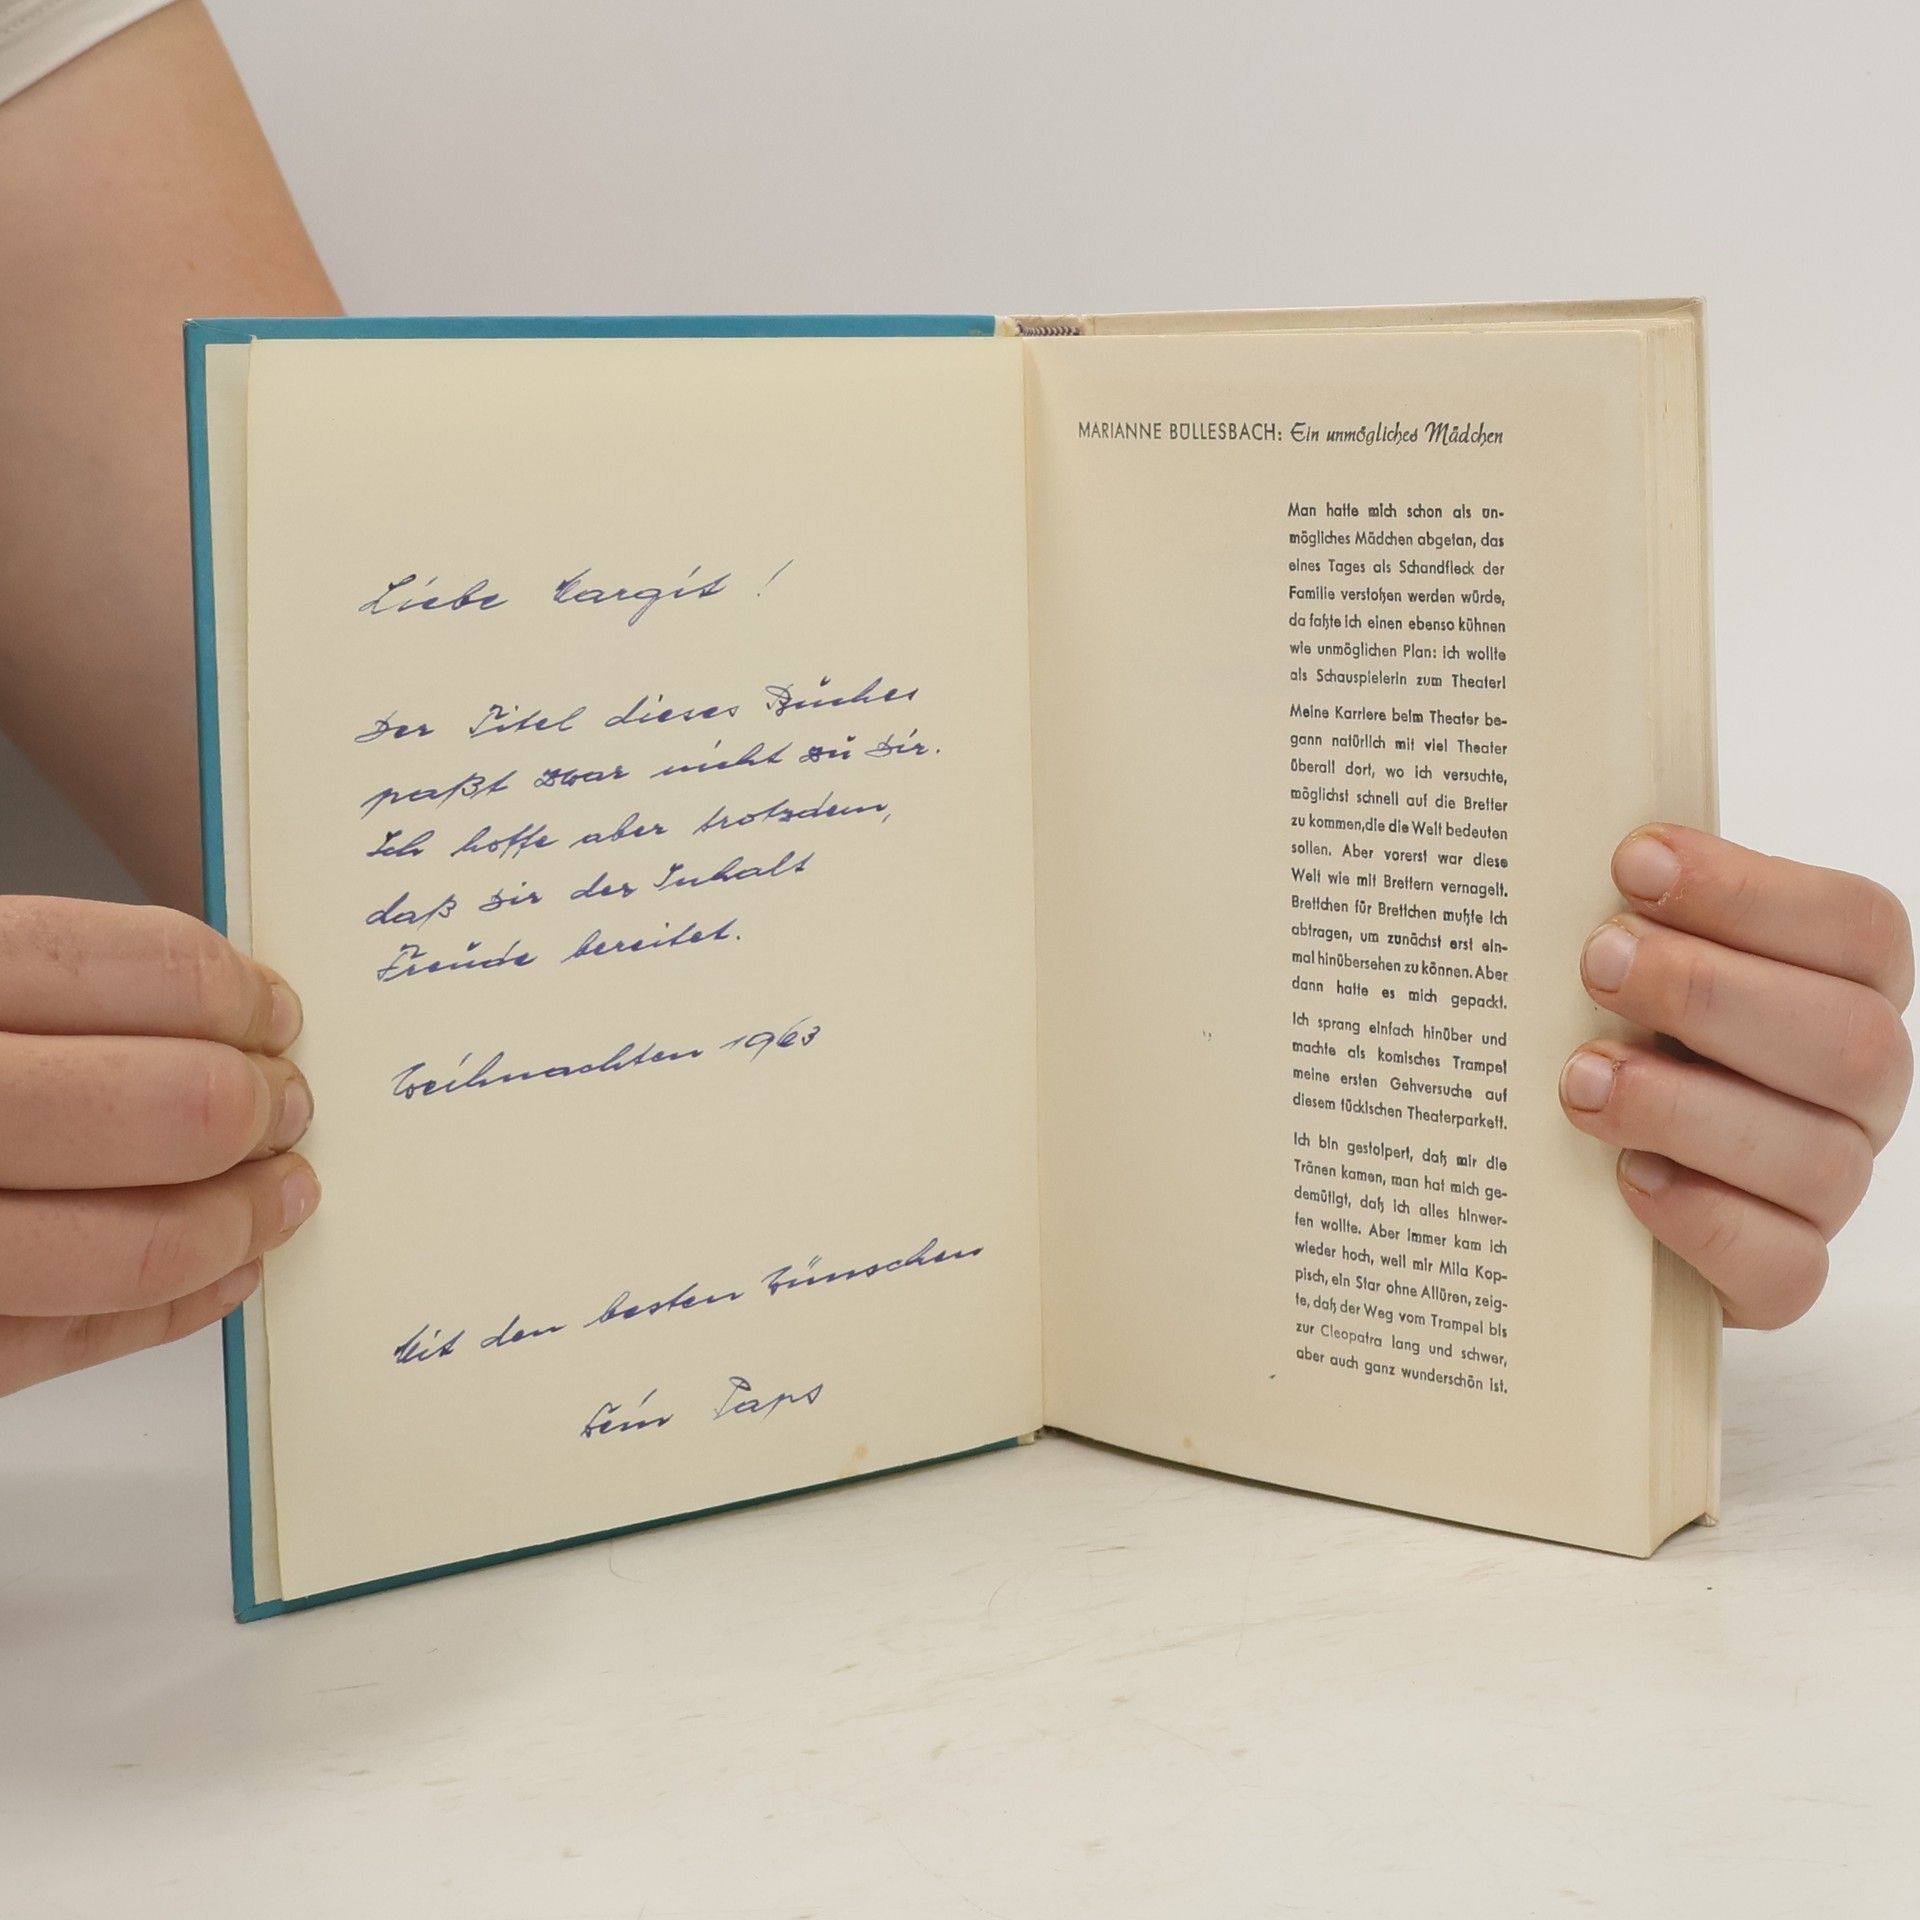 Liebe Margit!
Der Titel dieses Buches
paßt zwar nicht zu Dir.
Ich hoffe aber trotzdem,
daß Dir der Inhalt
Freude bereitet.
Weihnachten 1963
Mit den besten Wünschen
Dein Paps
MARIANNE BÜLLESBACH: Ein unmögliches Mädchen
Man hatte mich schon als un-
mögliches Mädchen abgetan, das
eines Tages als Schandfleck der
Familie verstoßen werden würde,
da faßte ich einen ebenso kühnen
wie unmöglichen Plan: ich wollte
als Schauspielerin zum Theater!
Meine Karriere beim Theater be-
gann natürlich mit viel Theater
überall dort, wo ich versuchte,
möglichst schnell auf die Bretter
zu kommen, die die Welt bedeuten
sollen. Aber vorerst war diese
Welt wie mit Brettern vernagelt.
Brettchen für Brettchen mußte ich
abtragen, um zunächst erst ein-
mal hinübersehen zu können. Aber
dann hatte es mich gepackt.
Ich sprang einfach hinüber und
machte als komisches Trampel
meine ersten Gehversuche auf
diesem tückischen Theaterparkett.
Ich bin gestolpert, daß mir die
Tränen kamen, man hat mich ge-
demütigt, daß ich alles hinwer-
fen wollte. Aber immer kam ich
wieder hoch, weil mir Mila Kop-
pisch, ein Star ohne Allüren, zeig-
te, daß der Weg vom Trampel bis
zur Cleopatra lang und schwer,
aber auch ganz wunderschön ist.